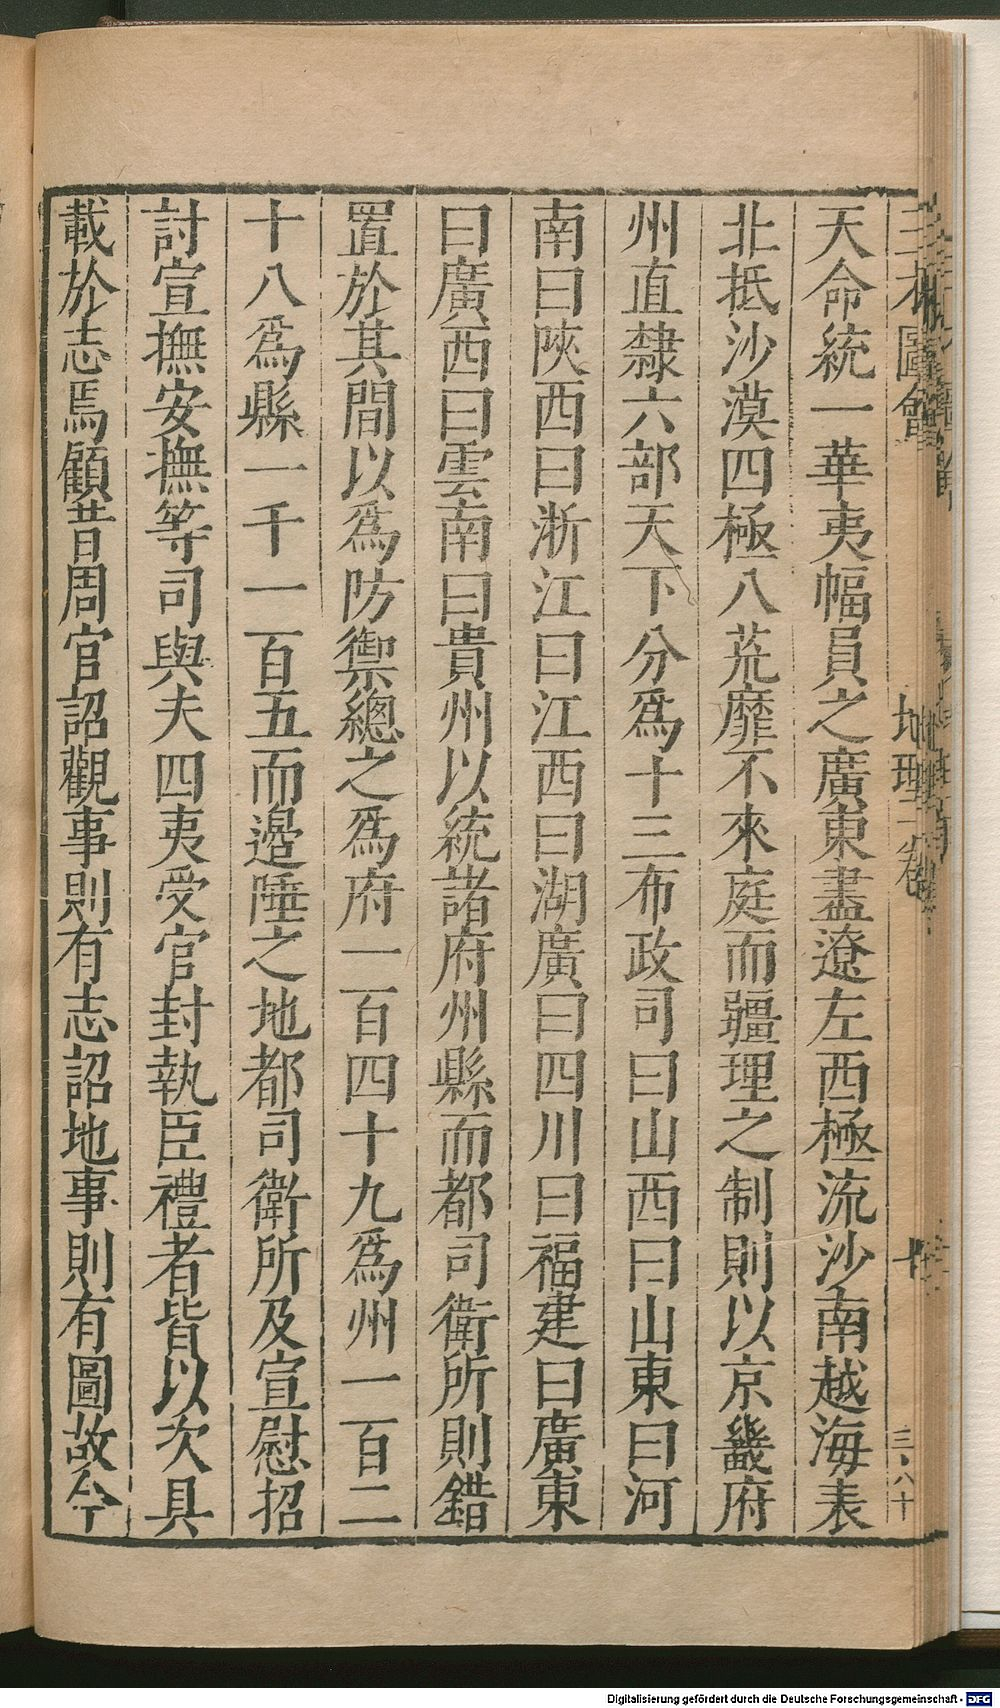 三才圖會 地理一卷 十 三·八十
天命統一華夷幅員之廣東盡遼左西極流沙南越海表
北抵沙漠四極八荒靡不來庭而疆理之制則以京畿府
州直隸六部天下分爲十三布政司曰山西曰山東曰河
南曰陝西曰浙江曰江西曰湖廣曰四川曰福建曰廣東
曰廣西曰雲南曰貴州以統諸府州縣而都司衛所則錯
置於其間以爲防禦總之爲府一百四十九爲州一百二
十八爲縣一千一百五而邉陲之地都司衛所及宣慰招
討宣撫安撫等司與夫四夷受官封執臣禮者皆以次具
載於志焉顧昔周官詔觀事則有志詔地事則有圖故今
Digitalisierung gefördert durch die Deutsche Forschungsgemeinschaft - DFG